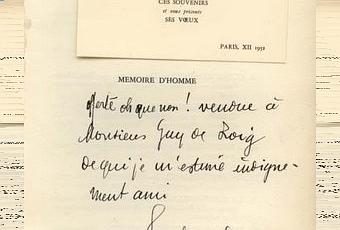 CES SOUVENIRS
et vous présente
SES VŒUX
PARIS, XII 1952
MEMOIRE D'HOMME
offerte oh que non ! vendue à
Monsieur Guy de
de qui je m'estime indigne-
ment ami